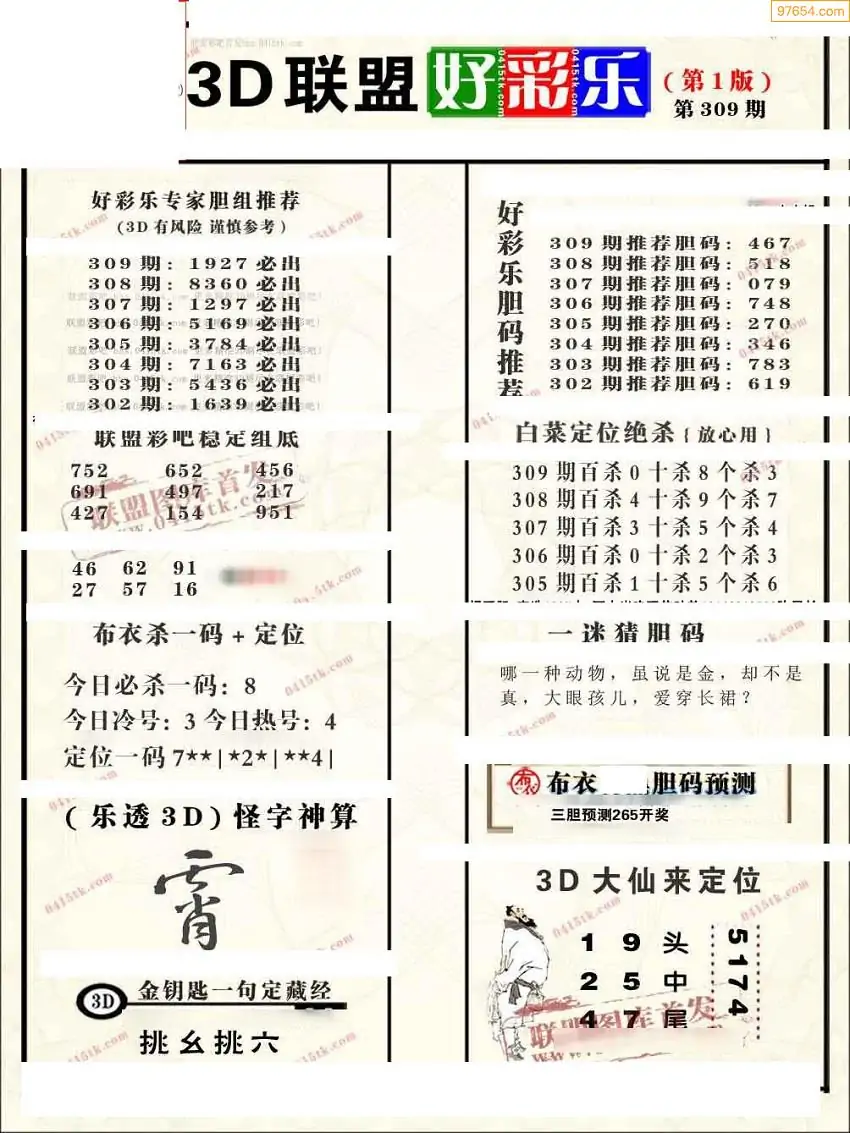 97654.com
3D联盟 好彩乐 (第1版)
第309期
好彩乐专家胆组推荐
(3D有风险 谨慎参考)
309期: 1927必出
308期: 8360必出
307期: 1297必出
306期: 5169必出
305期: 3784必出
304期: 7163必出
303期: 5436必出
302期: 1639必出
联盟彩吧稳定组底
752 652 456
691 497 217
427 154 951
46 62 91
27 57 16
布衣杀一码+定位
今日必杀一码: 8
今日冷号: 3 今日热号: 4
定位一码7**|*2*|**4|
(乐透3D)怪字神算
霄
3D 金钥匙一句定藏经
挑幺挑六
好彩乐胆码推荐
309期推荐胆码: 467
308期推荐胆码: 518
307期推荐胆码: 079
306期推荐胆码: 748
305期推荐胆码: 270
304期推荐胆码: 346
303期推荐胆码: 783
302期推荐胆码: 619
白菜定位绝杀{放心用}
309期百杀0十杀8个杀3
308期百杀4十杀9个杀7
307期百杀3十杀5个杀4
306期百杀0十杀2个杀3
305期百杀1十杀5个杀6
一迷猜胆码
哪一种动物，虽说是金，却不是
真，大眼孩儿，爱穿长裙？
布衣 胆码预测
三胆预测265开奖
3D大仙来定位
1 9 头
2 5 中
4 7 尾
5174
联盟图库首发
www.0415tk.com